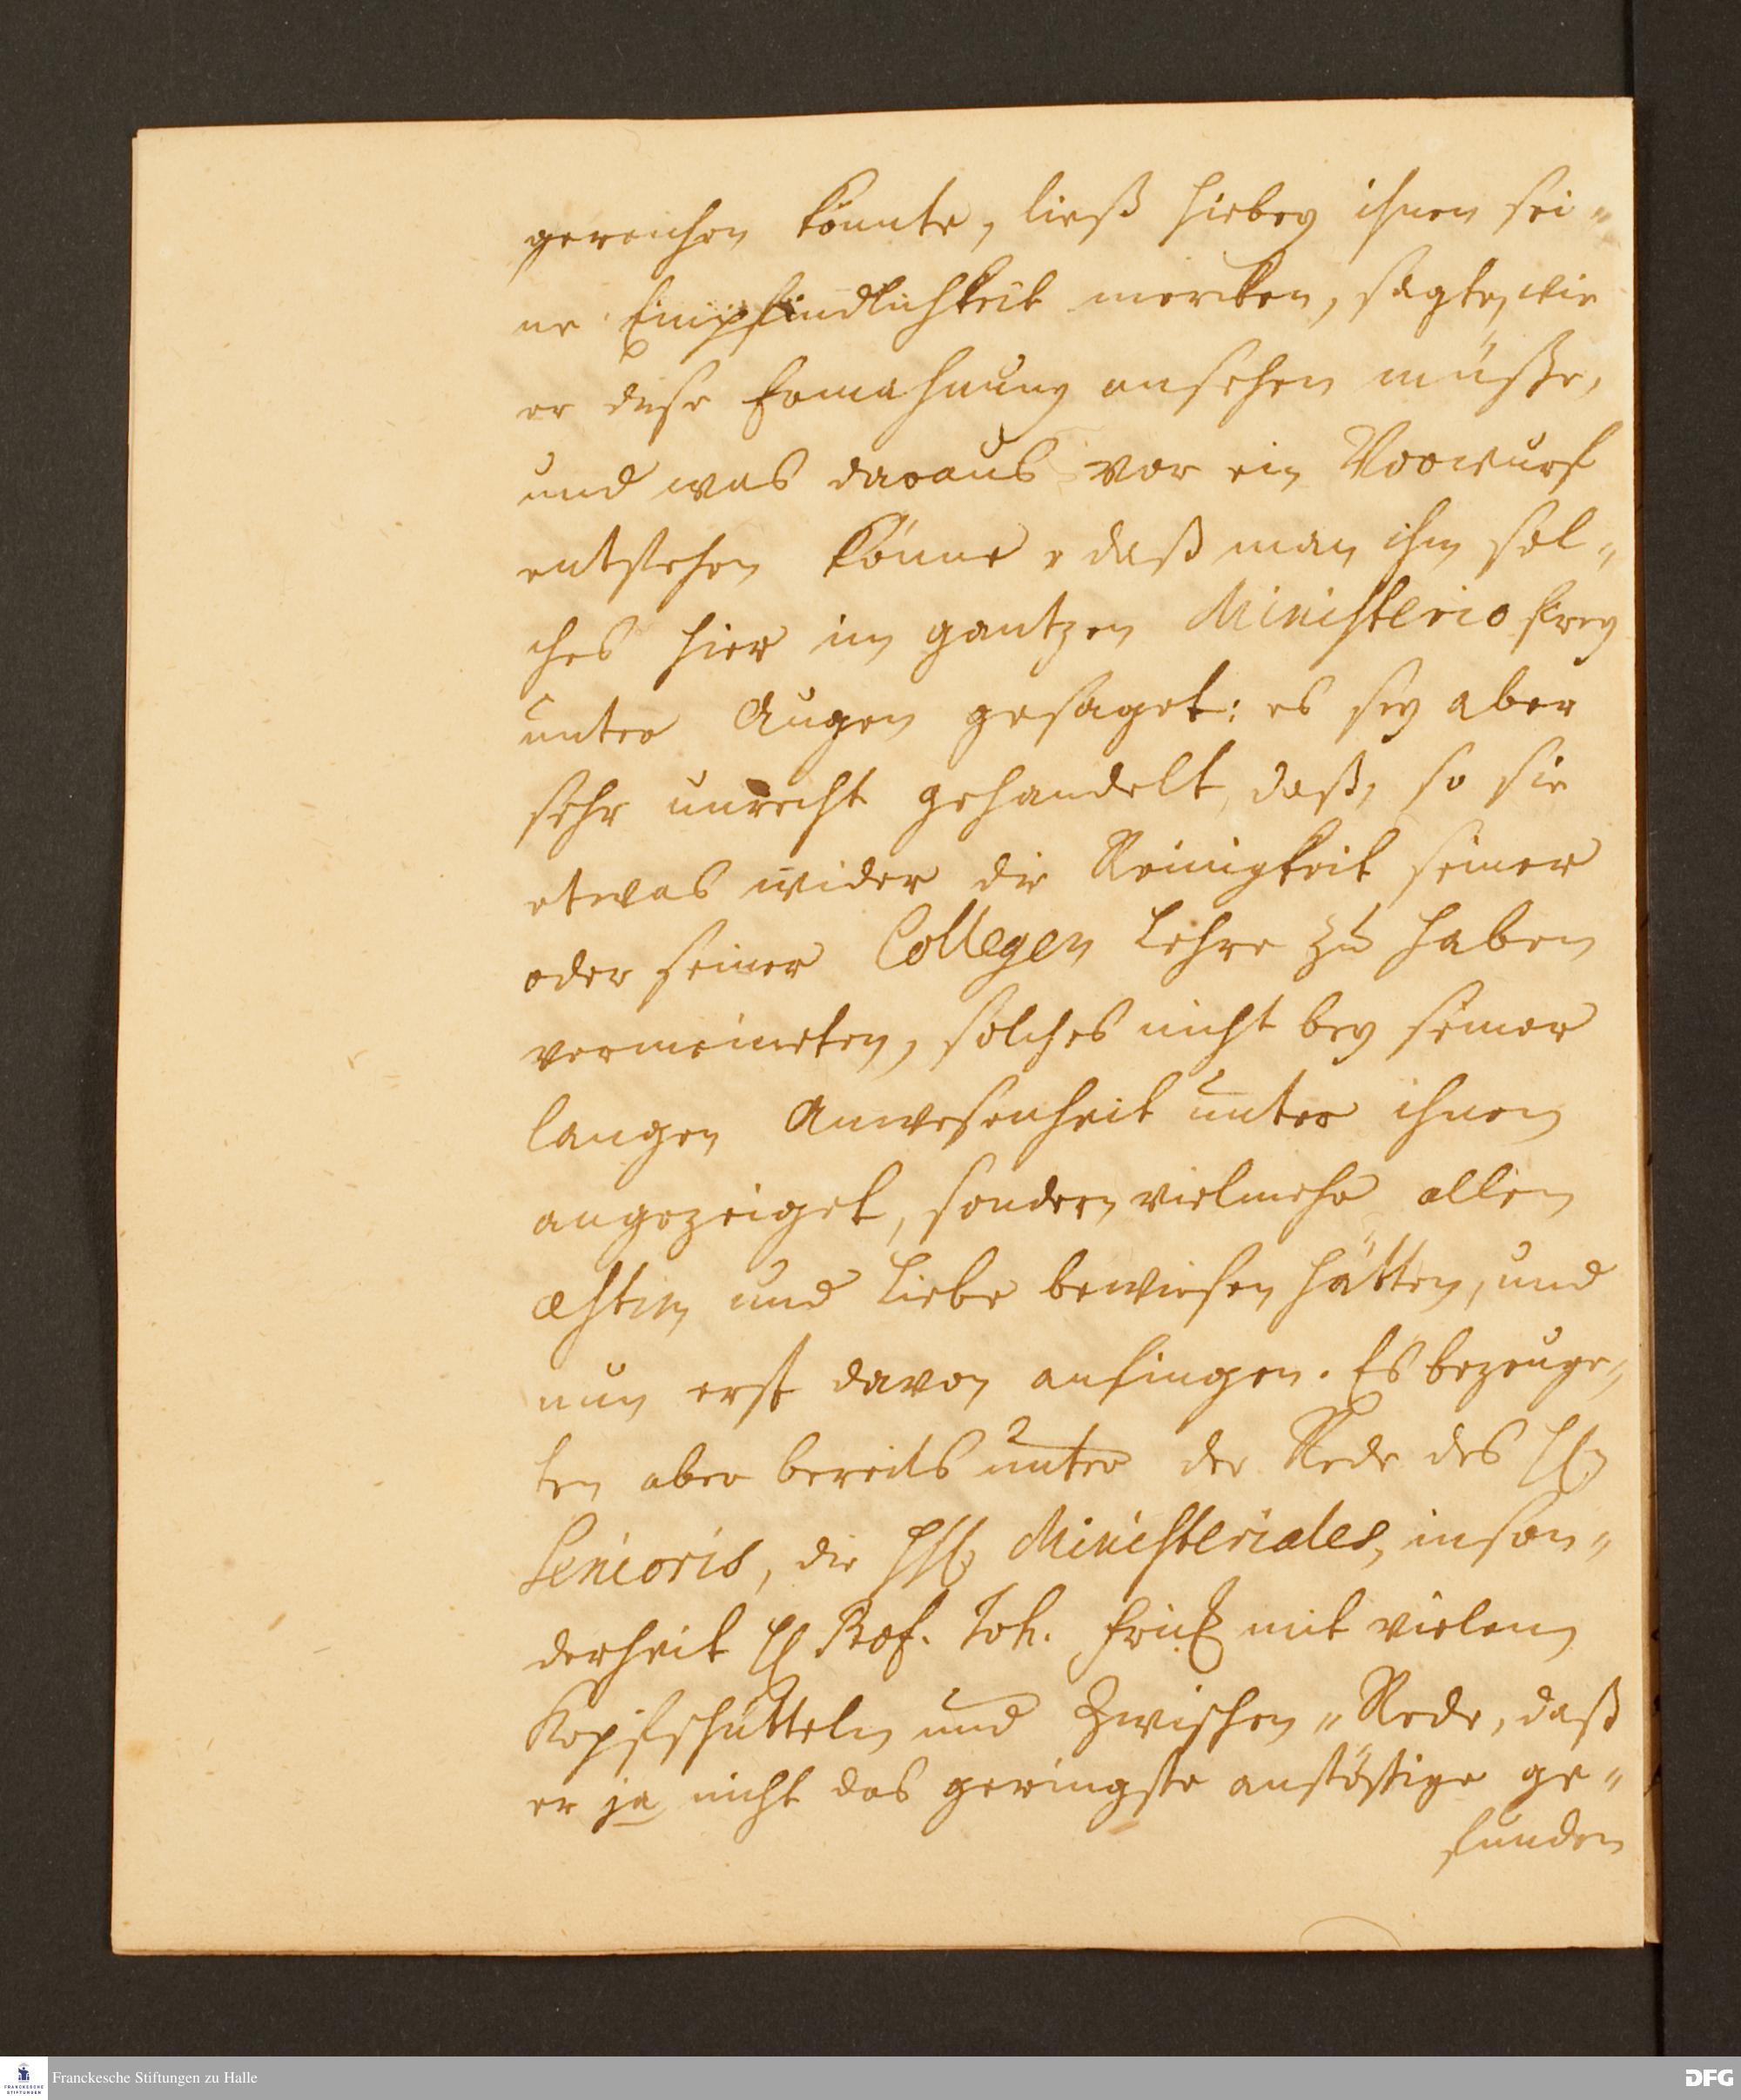 gereichen könnte, ließ hiebey ihnen sei-
ne Empfindlichkeit mercken, sagte, wie
er diese Ermahnung ansehen müßte,
und was daraus vor ein Vorwurf
entstehen könne, daß man ihm sol-
ches hier im gantzen Ministerio frey
unter Augen gesaget: es sey aber
sehr unrecht gehandelt, daß, so sie
etwas wider die Reinigkeit seiner
oder seiner Collegen Lehre zu haben
vermeineten, solches nicht bey seiner
langen Anwesenheit unter ihnen
angezeiget, sondern vielmehr allen
æstim und Liebe bewiesen hätten, und
nun erst davon anfingen. Es bezeuge-
ten aber bereits unter der Rede des H.
Senioris, die HH. Ministeriales, inson-
derheit H Prof. Joh. Frick mit vielem
Kopfschütteln und Zwischen-Rede, daß
er ja nicht das geringste anstößige ge-
funden
Franckesche Stiftungen zu Halle
FRANCKESCHE
STIFTUNGEN
DFG